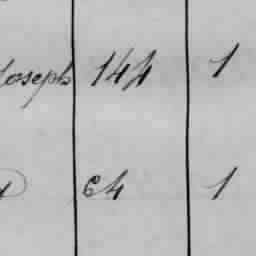 Joseph 144 1
64 1